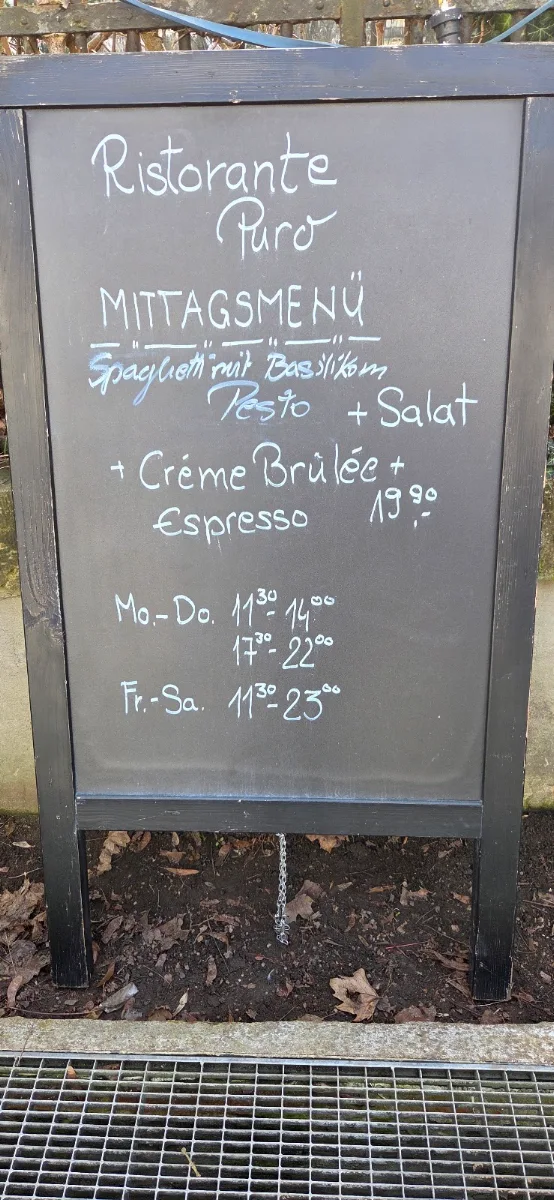 Ristorante
Puro
MITTAGSMENÜ
Spaghetti mit Basilikom
Pesto + Salat
+ Créme Brûlée +
Espresso 19.90.-
Mo.-Do. 11³⁰-14⁰⁰
17³⁰-22⁰⁰
Fr.-Sa. 11³⁰-23⁰⁰